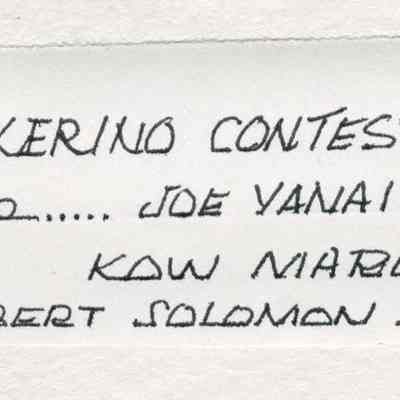 KERINO CONTES
O..... JOE YANAI
KOW MARU
BERT SOLOMON